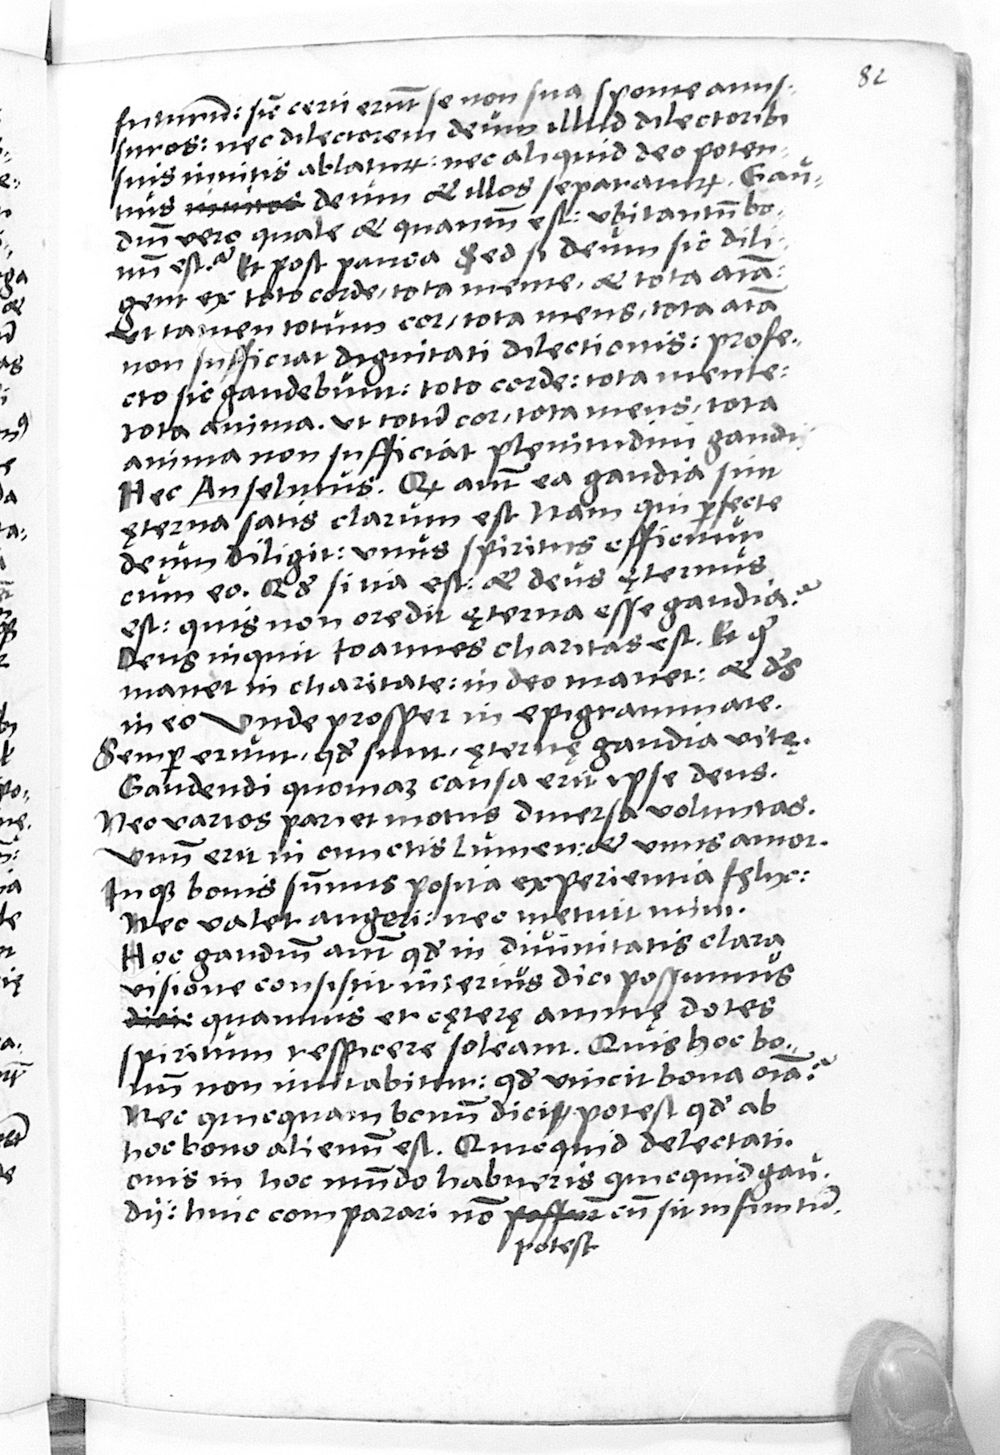 82
futurũ: sic̃ certi erũt se non sua sponte amis-
suros: nec dilectorem deum illud dilectorib
suis inuitis ablaturũ: nec aliquid deo poten-
tius inuitos deum & illos separaturũ. Gau-
diũ vero quale & quantũ est: vbi tantũ bo-
nũ est? Et post pauca Sed si deum sic dili-
gent ex toto corde, tota mente, & tota aĩa:
Vt tamen totum cor, tota mens, tota aĩa
non sufficiat dignitati dilectionis: profe-
cto sic gaudebunt: toto corde: tota mente:
tota anima. Vt totũ cor, tota mens, tota
anima non sufficiat plenitudini gaudii
Hec Anselmus. Qꝫ aut̃ ea gaudia sint
ęterna satis clarum est Nam qui ꝑfecte
deum diligit: vnus spiritus efficitur
cum eo. Qđ si ita est: & deus ęternus
est: quis non credit ęterna esse gaudia?
Deus inquit Ioannes charitas est. Et q̃
manet in charitate: in deo manet: & ds̃
in eo Vnde prosper in epigrammate.
Semꝑ erunt, qđ sunt, ęternę gaudia vitę.
Gaudendi quoniaꝫ causa erit ipse deus.
Nec varios pariet motus diuersa voluntas.
Vnũ erit in cunctis lumen: & vnus amor.
Inqꝫ bonis sũmis posita experientia fęlix:
Nec valet augeri: nec metuit minui.
Hoc gaudiũ aut̃ qđ in diuinitatis clara
visione consistit interius dici possumus
dici: quamuis et cęterę animę dotes
spiritum respicere soleant. Quis hoc bo-
nũ non imitabitur: qđ vincit bona oĩa?
Nec quicquam bonũ dici potest qđ ab
hoc bono alienũ est. Quicquid delectati-
onis in hoc mũdo habueris quicquid gau-
dij: huic comparari nõ possunt cũ sit infinitũ.
potest